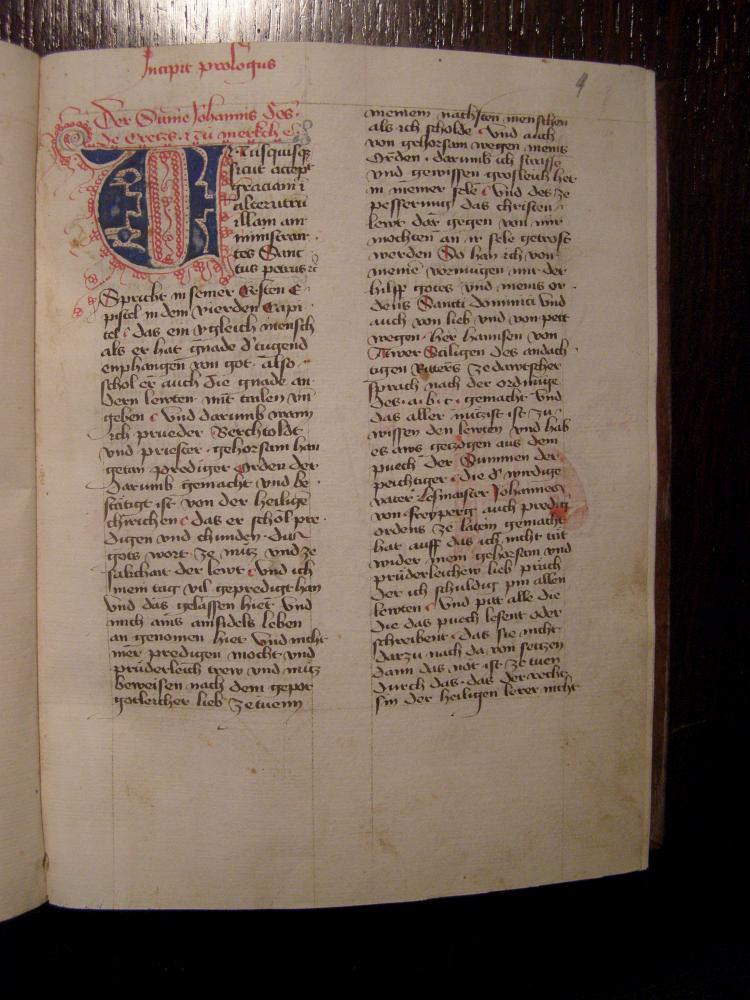 Incipit prologus
9
Der Sume Johannis des
de Creczs zu merkch
Unusquisq
sicut accepit
graciam i
alterutru
illam am
ministran
tes Sanc
tus petrus
Spricht in seiner Ersten E
pistel in dem vierden Capi
tel das ein ygleich mensch
als er hat gnade d' tugend
enphangen von got · also
schol er auch die gnade an
dern lewten mit tailen vn
geben Und darumb wann
ich prueder Berchtoldt
vnd priester · gehorsam han
getan prediger Orden der
darumb gemacht vnd be
stätigt ist von der heilige
chirichen das er schol pre
digen vnd chunden · das
gots wort · ze nucz vnd ze
salichait der lewt Und ich
mein tag vil gepredigt han
vnd das gelassen hiet Und
mich ains ainsidels leben
an genomen hiet Und nicht
mer predigen mocht vnd
prüderleich trew vnd nucz
beweisen nach dem gepot
gotleicher lieb ze tuenn
meinem nachsten menschen
als ich scholde Und auch
von gehorsam wegen meins
Orden · darumb ich straffe
vnd gewissen grosleich het
in meiner sele Und des ze
pesserung das christen
lewt dar gegen von mir
mochten an ir sele getrost
werden So han ich von
meine vermugen mit der
hilff gotes vnd meins or
dens Sancti dominici Und
auch von lieb vnd von pett
wegen · her hannsen von
Awer Seiligen des andach
tigen Ritters ze dawtscher
sprach nach der ordnuge
des · a · b · c · gemacht vnd
das aller nuczist ist zu
wissen den lewten vnd hab
es aws geczogen aus dem
puech der Summen der
peichtiger die d' wirdige
vater Lesmaister Johannes
von freyperg auch prediger
ordens ze latein gemacht
hat auff das ich nicht tät
wider mein gehorsam vnd
prüderleichew lieb prach
der ich schuldig pin allen
lewten Und pitt alle die
die das puech lesent oder
schreibent · das sie nicht
darzu noch da von seczen
dann das not ist ze tuen
durch das · das der recht
sin der heiligen lerer nicht